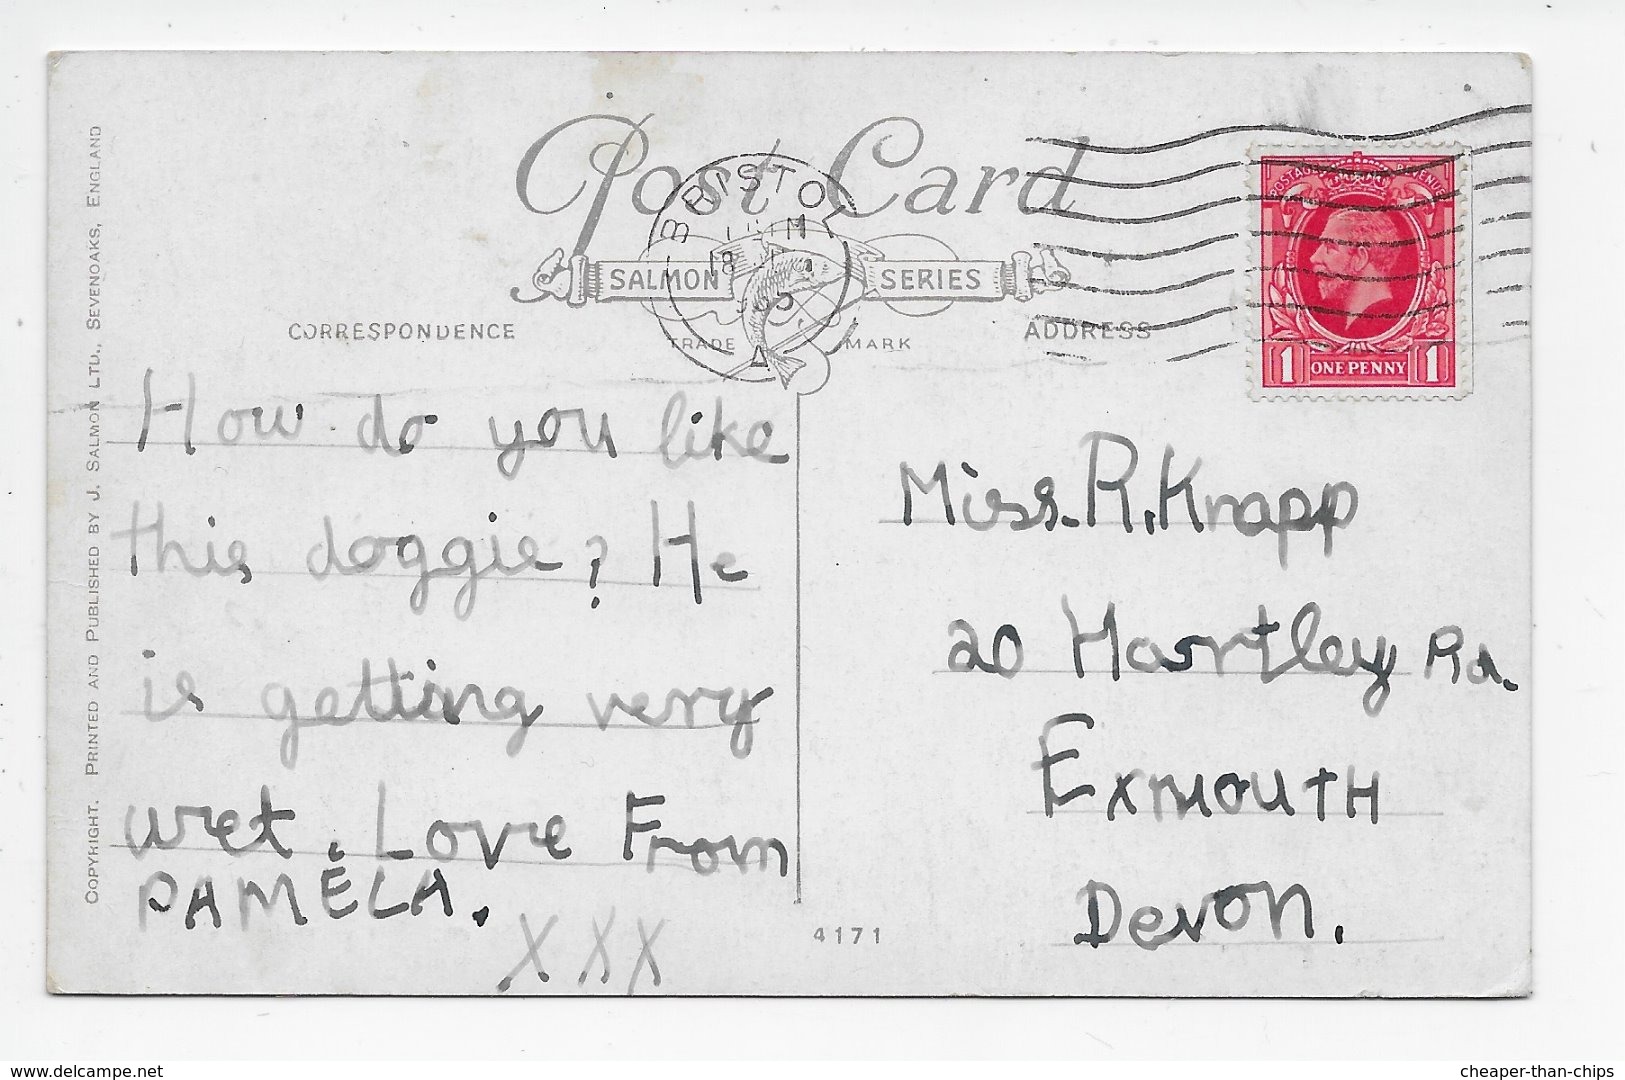 Post Card
BRISTOL
18
35
A
SALMON SERIES
TRADE MARK
CORRESPONDENCE
ADDRESS
POSTAGE REVENUE
1 ONE PENNY 1
COPYRIGHT. PRINTED AND PUBLISHED BY J. SALMON LTD., SEVENOAKS, ENGLAND
How do you like
this doggie? He
is getting very
wet. Love From
PAMELA.
XXX
Miss. R. Knapp
20 Hartley Rd.
EXMOUTH
Devon.
4171
www.delcampe.net
cheaper-than-chips